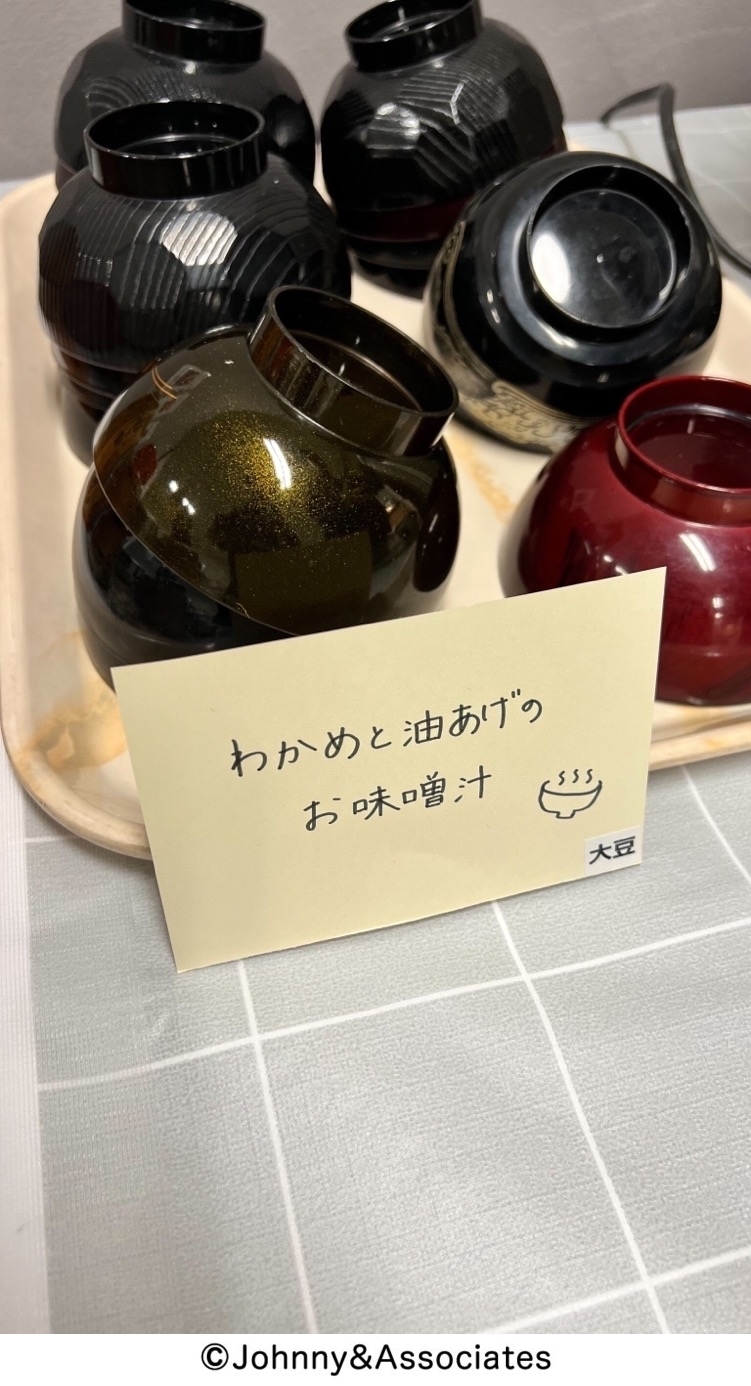 わかめと油あげの
お味噌汁
大豆
©Johnny&Associates